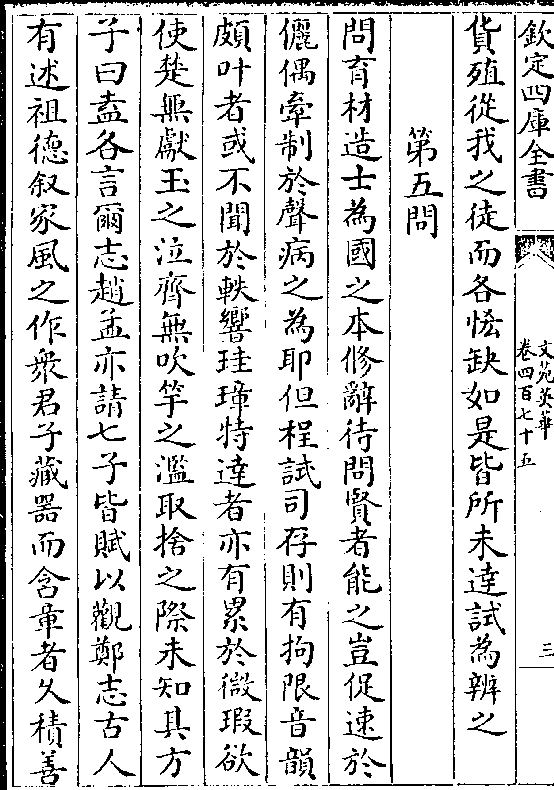 欽定四庫全書
文苑英華
卷四百七十五
三
貨殖從我之徒而各恡缺如是皆所未達試為辨之
第五問
問育材造士為國之本修辭待問賢者能之豈促速於
儷偶牽制於聲病之為耶但程試司存則有拘限音韻
頗叶者或不聞於軼響珪璋特達者亦有累於微瑕欲
使楚無獻玉之泣齊無吹竽之濫取捨之際未知其方
子曰盍各言爾志趙孟亦請七子皆賦以觀鄭志古人
有述祖德叙家風之作衆君子藏器而含章者久積善